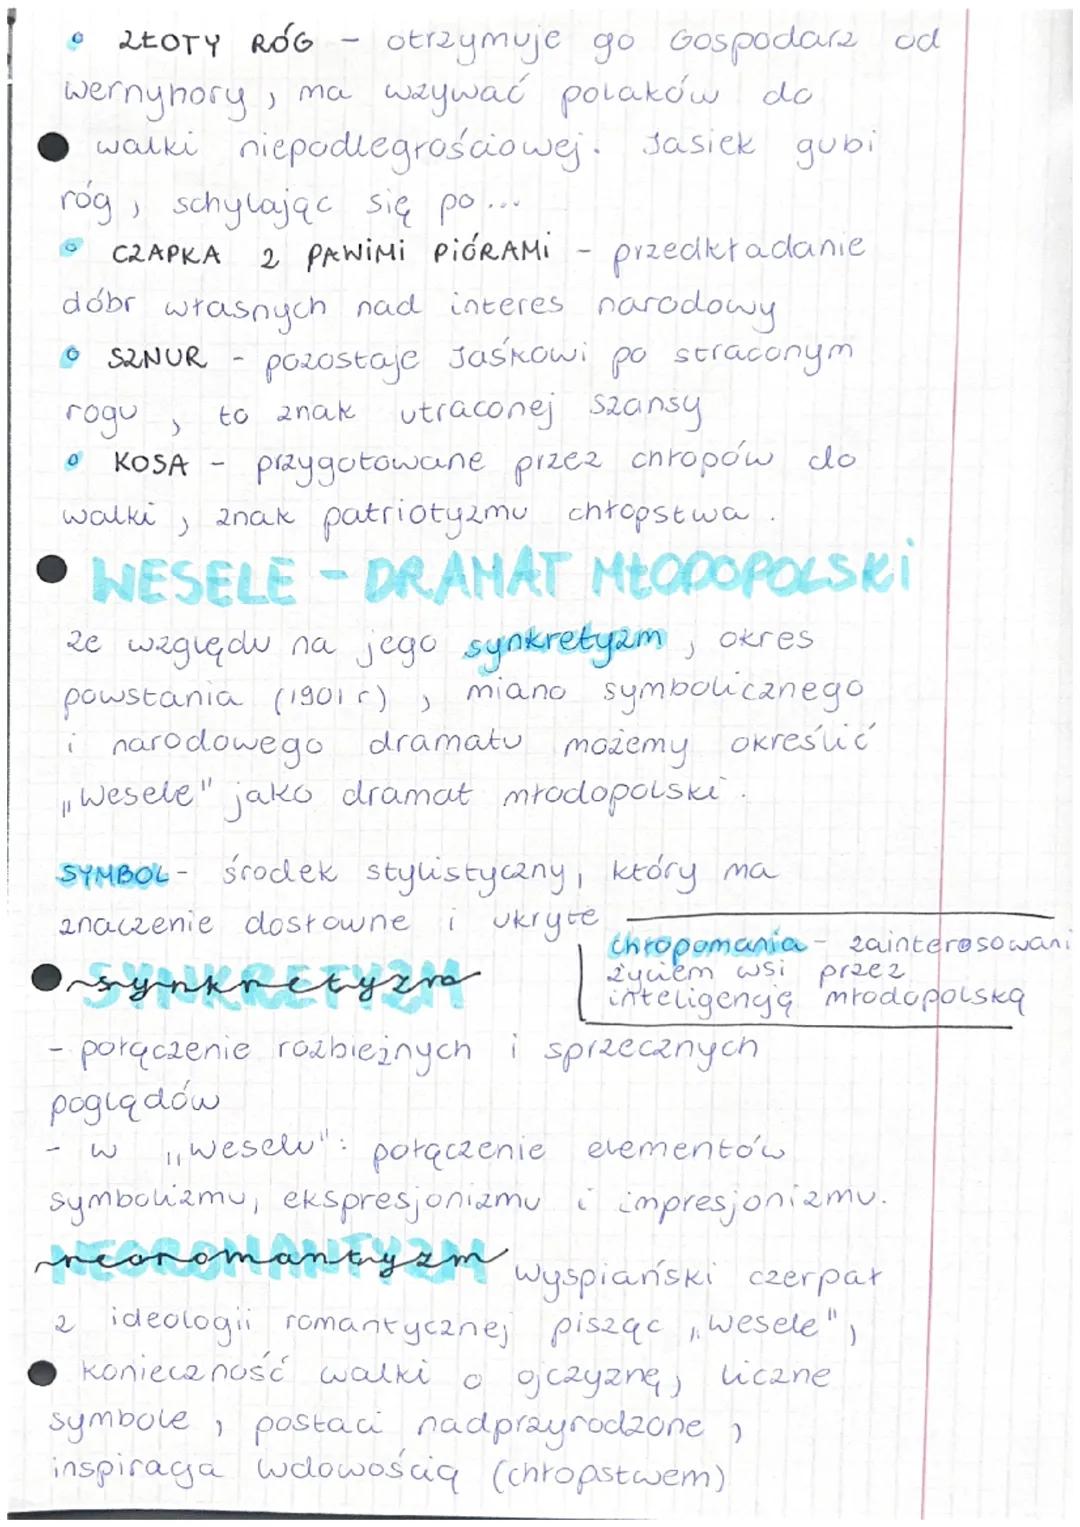 ZŁOTY RÓG – otrzymuje go Gospodarz od
wernyhory, ma wzywać polaków do
walki niepodległościowej. Jasiek gubi
róg, schylając się po...
CZAPKA Z PAWIMI PIÓRAMI – przedkładanie
dóbr własnych nad interes narodowy
SZNUR - pozostaje Jaśkowi po straconym
rogu, to znak utraconej szansy
KOSA – przygotowane przez chłopów do
walki, znak patriotyzmu chłopstwa.
WESELE – DRAMAT MŁODOPOLSKI
ze względu na jego synkretyzm, okres
powstania (1901 r), miano symbolicznego
i narodowego dramatu możemy określić
„Wesele" jako dramat młodopolski.
SYMBOL - środek stylistyczny, który ma
znaczenie dosłowne i ukryte
chłopomania – zainteresowani
życiem wsi przez
inteligencję młodopolską
synkretyzm
- połączenie rozbieżnych i sprzecznych
poglądów
- w „weselu": połączenie elementów
symbolizmu, ekspresjonizmu i impresjonizmu.
neoromantyzm wyspiański czerpał
z ideologii romantycznej pisząc „wesele",
konieczność walki o ojczyznę, liczne
symbole, postaci nadprzyrodzone,
inspiracja wdowością (chłopstwem)